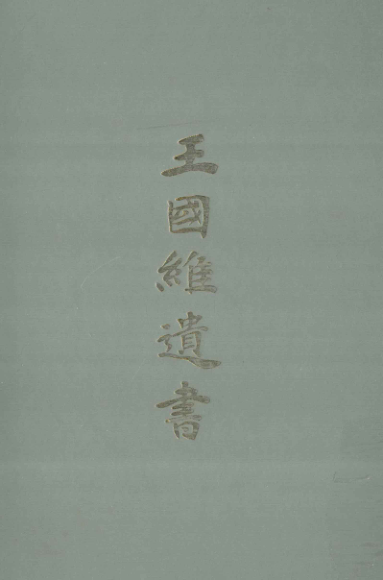 王國維遺書